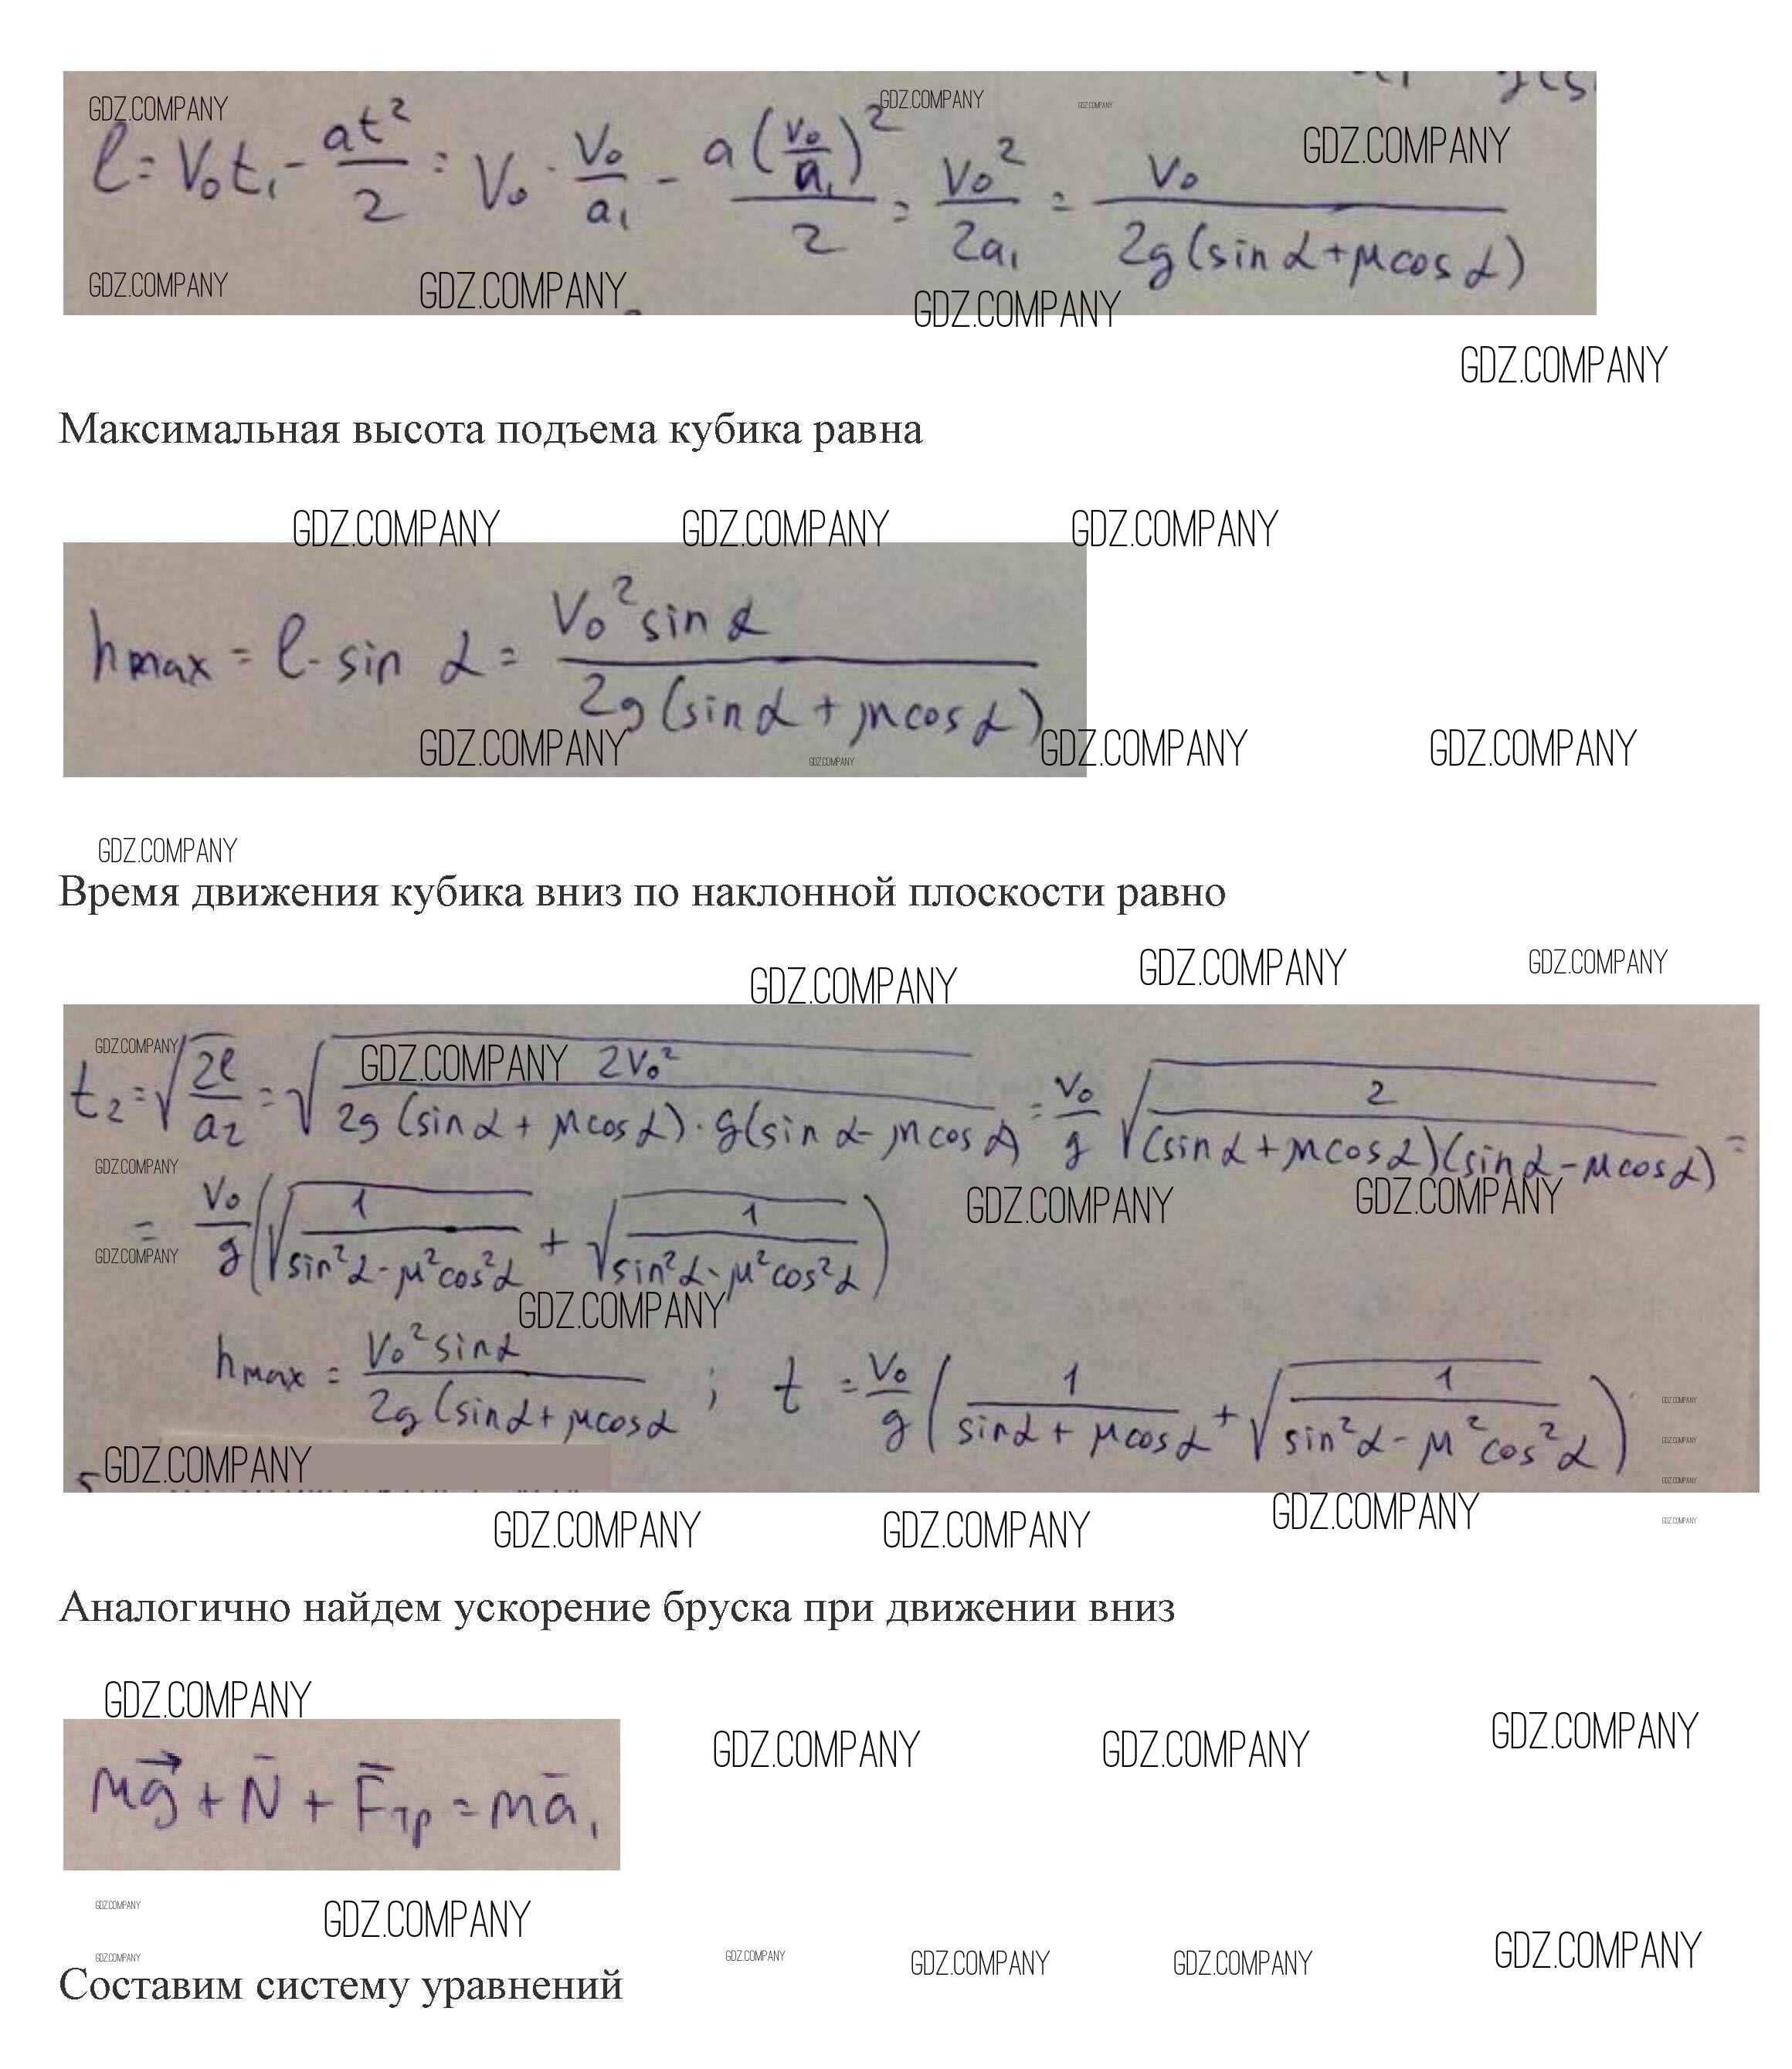 GDZ.COMPANY GDZ.COMPANY GDZ.COMPANY GDZ.COMPANY
l = V₀t₁ - at²/2 = V₀ · V₀/a₁ - a(V₀/a₁)²/2 = V₀²/2a₁ = V₀/2g(sin α + μcos α)
GDZ.COMPANY GDZ.COMPANY GDZ.COMPANY
GDZ.COMPANY
Максимальная высота подъема кубика равна
GDZ.COMPANY GDZ.COMPANY GDZ.COMPANY
hmax = l · sin α = V₀² sin α / 2g(sin α + μcos α)
GDZ.COMPANY GDZ.COMPANY GDZ.COMPANY GDZ.COMPANY
GDZ.COMPANY
Время движения кубика вниз по наклонной плоскости равно
GDZ.COMPANY GDZ.COMPANY GDZ.COMPANY
GDZ.COMPANY GDZ.COMPANY
t₂ = √(2l/a₂) = √(2V₀² / 2g(sin α + μcos α) · g(sin α - μcos α)) = V₀/g √(2/(sin α + μcos α)(sin α - μcos α)) =
GDZ.COMPANY GDZ.COMPANY GDZ.COMPANY
= V₀/g (√(1/sin²α - μ²cos²α) + √(1/sin²α - μ²cos²α))
GDZ.COMPANY GDZ.COMPANY
hmax = V₀² sin α / 2g(sin α + μcos α ; t = V₀/g (1/sin α + μcos α + √(1/sin²α - μ²cos²α))
GDZ.COMPANY GDZ.COMPANY GDZ.COMPANY GDZ.COMPANY
GDZ.COMPANY GDZ.COMPANY GDZ.COMPANY GDZ.COMPANY
Аналогично найдем ускорение бруска при движении вниз
GDZ.COMPANY GDZ.COMPANY GDZ.COMPANY GDZ.COMPANY
mg⃗ + N̄ + F̄тр = mā₁
GDZ.COMPANY GDZ.COMPANY
GDZ.COMPANY GDZ.COMPANY GDZ.COMPANY GDZ.COMPANY GDZ.COMPANY
Составим систему уравнений